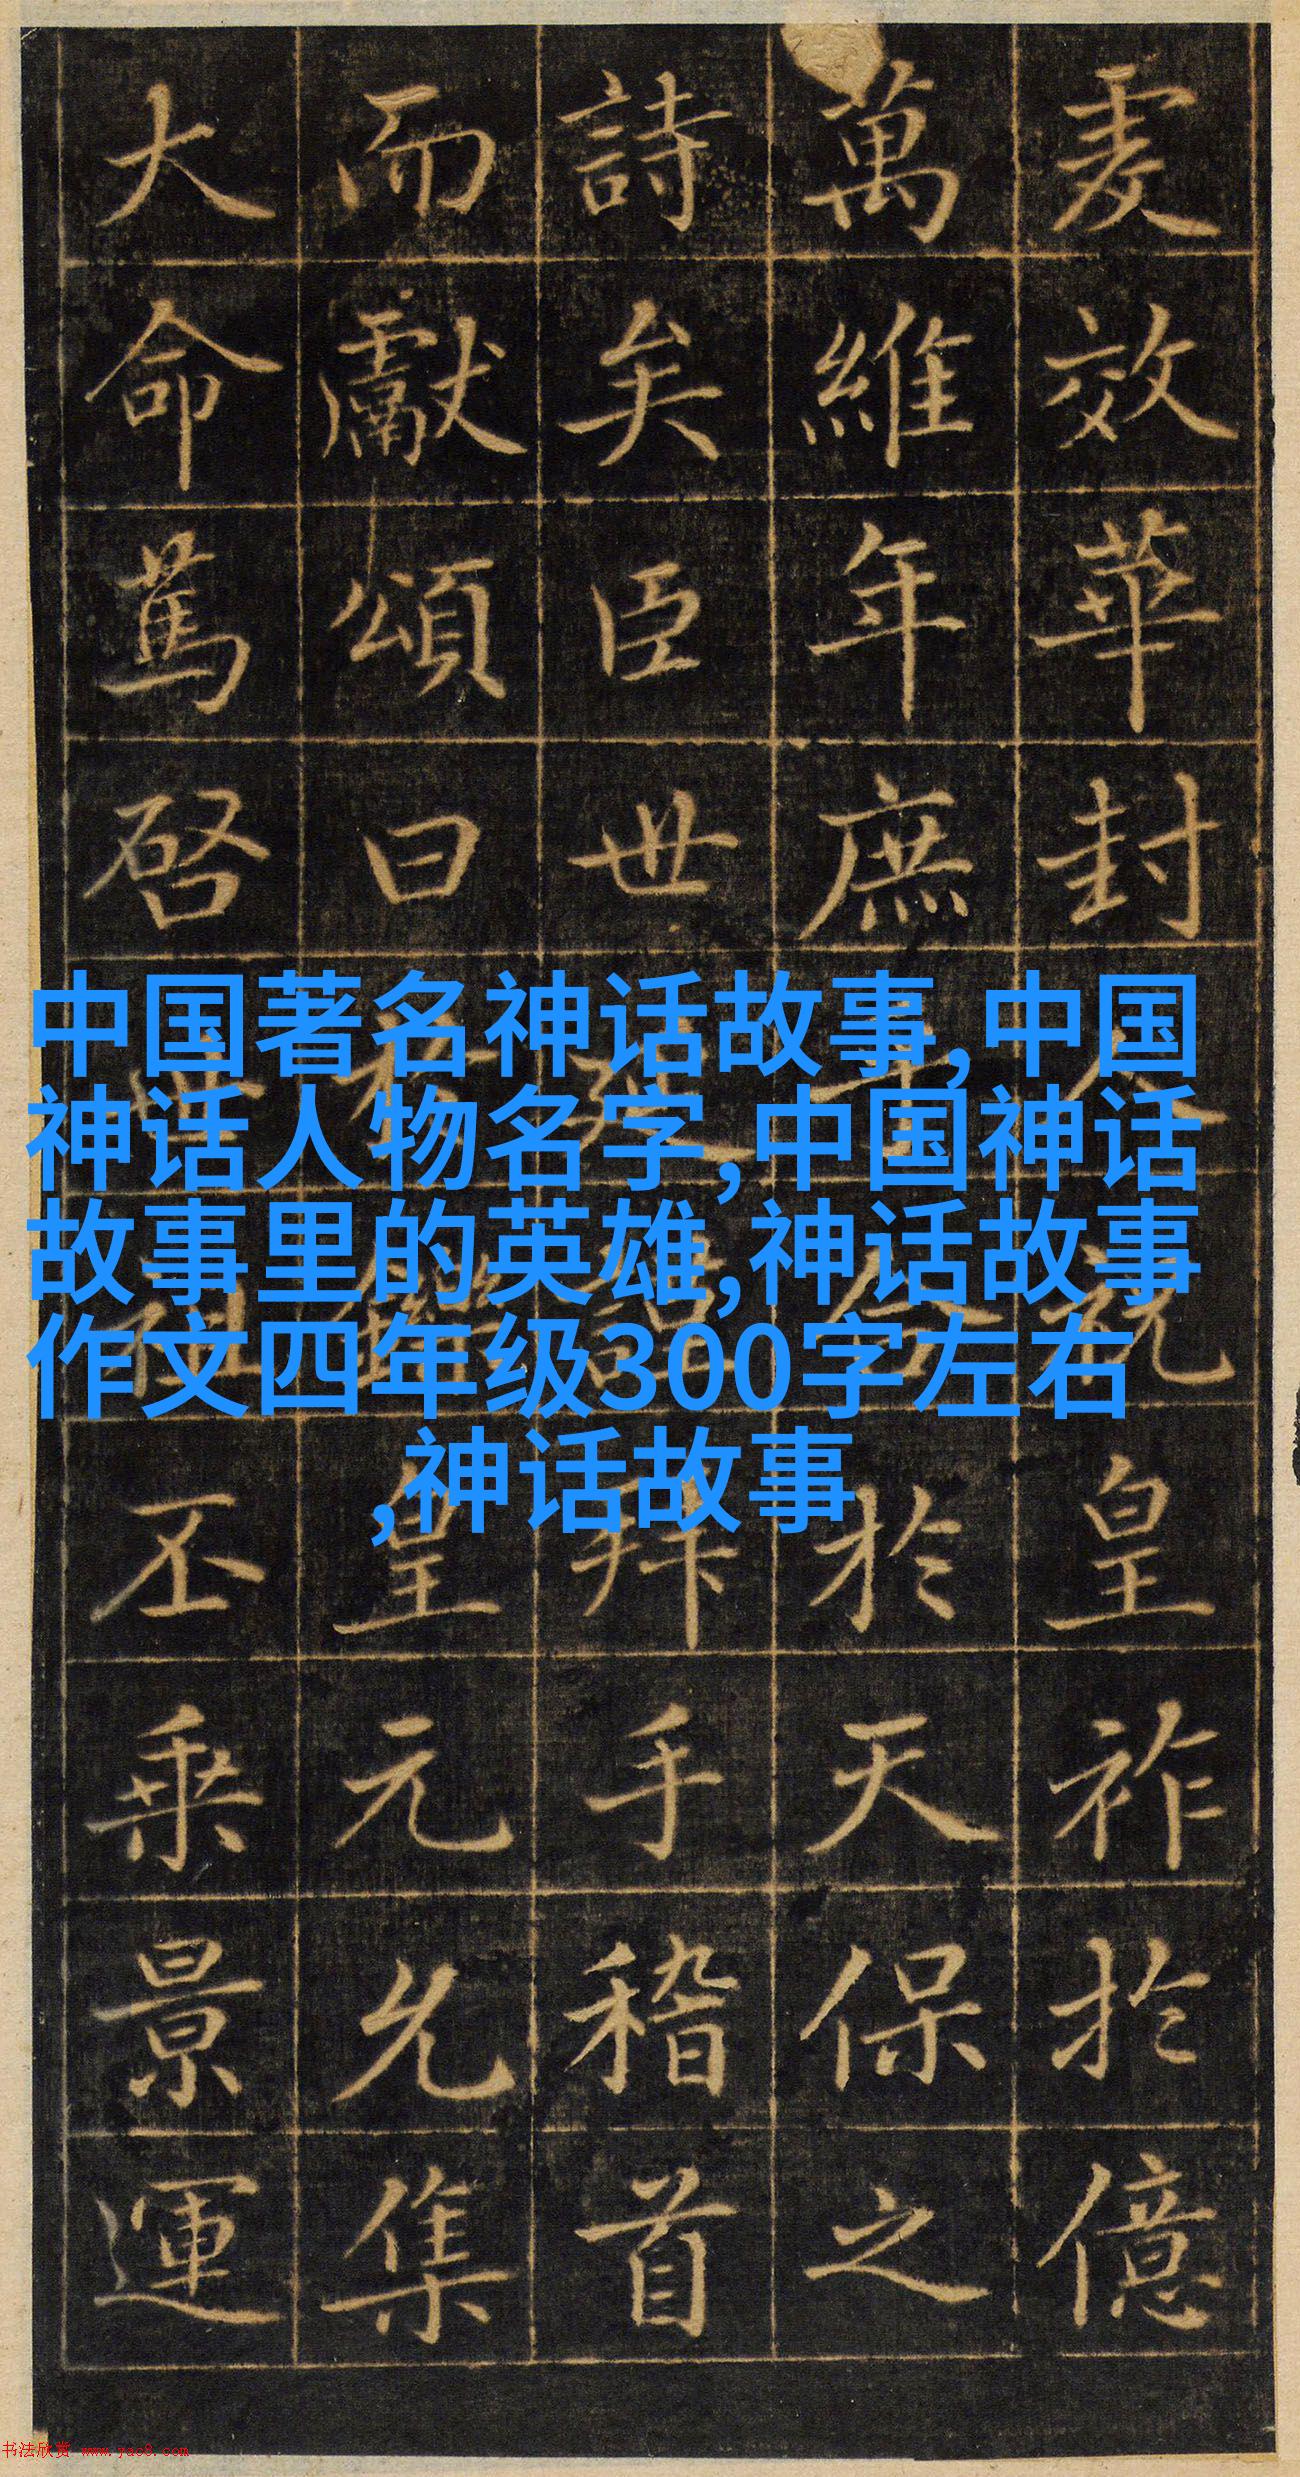 效華封人祝皇祚於億
萬維年庶於天保之
詩矣臣世謹拜手稽首
而獻頌曰皇元允集
大命篤啓世祖丕乗景運
中国著名神话故事,中国
神话人物名字,中国神话
故事里的英雄,神话故事
作文四年级300字左右
,神话故事
书法欣赏 www.yac8.com